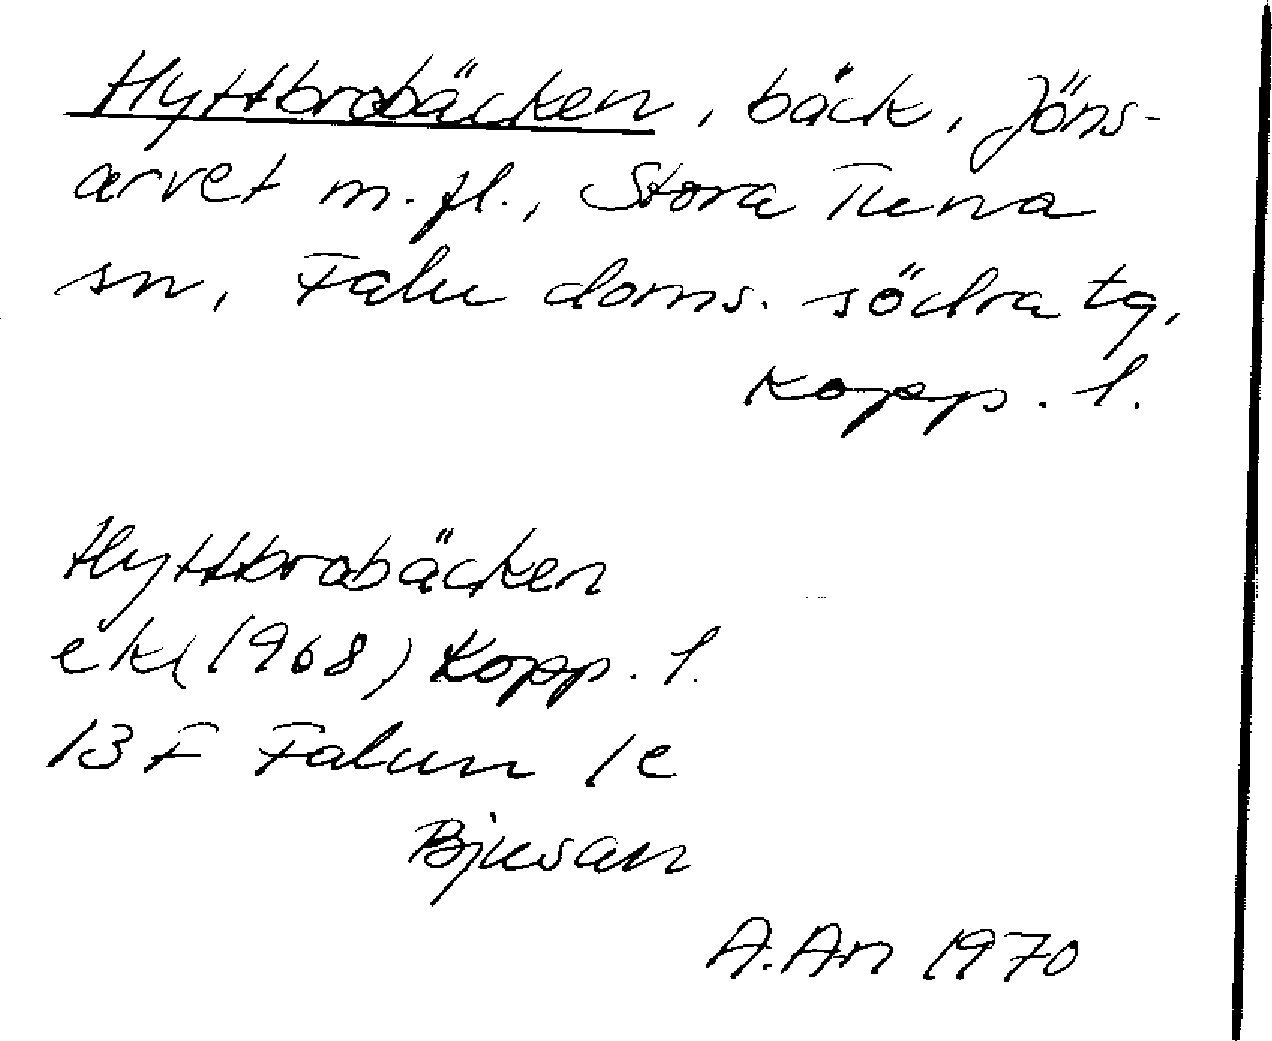 Hyttbrobäcken, bäck, Jöns-
arvet m.fl., Stora Tuna
sn, Falu doms. södra tg,
Kopp. l.
Hyttbrobäcken
ek (1968) Kopp. l.
13 F Falun 1e
Bjusan
A.An 1970